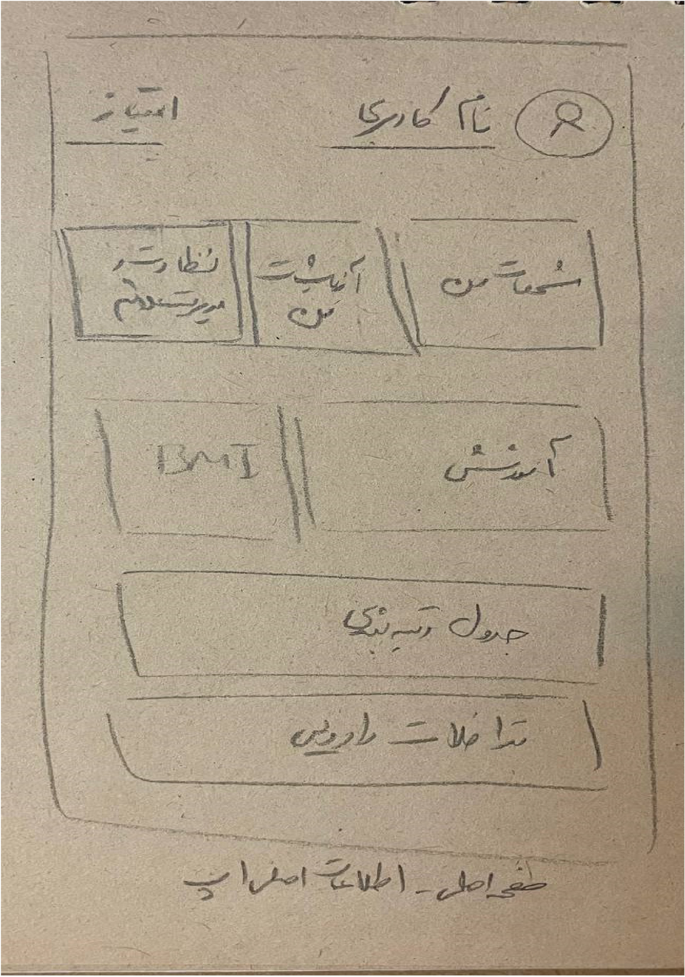 نام کاربری
امتیاز
آزمایشات
من
نظارت و
مدیریت علائم
آموزش
BMI
جدول رتبه بندی
تداخلات دارویی
صفحه اصلی - اطلاعات اصلی اپ